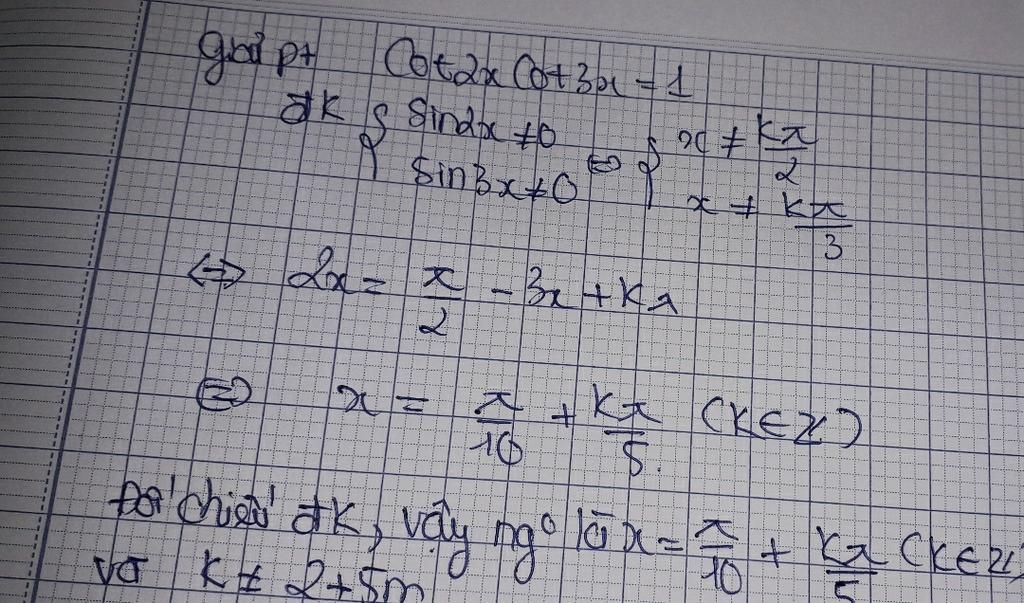 giải pt Cot2x Cot3x = 1
đk { sin2x ≠ 0 ⇔ { x ≠ kπ/2
sin3x ≠ 0 x ≠ kπ/3
⇔ 2x = π/2 - 3x + kπ
⇔ x = π/10 + kπ/5 (k ∈ Z)
Đối chiếu đk, vậy ngº là x = π/10 + kπ/5 (k ∈ Z)
và k ≠ 2 + 5m